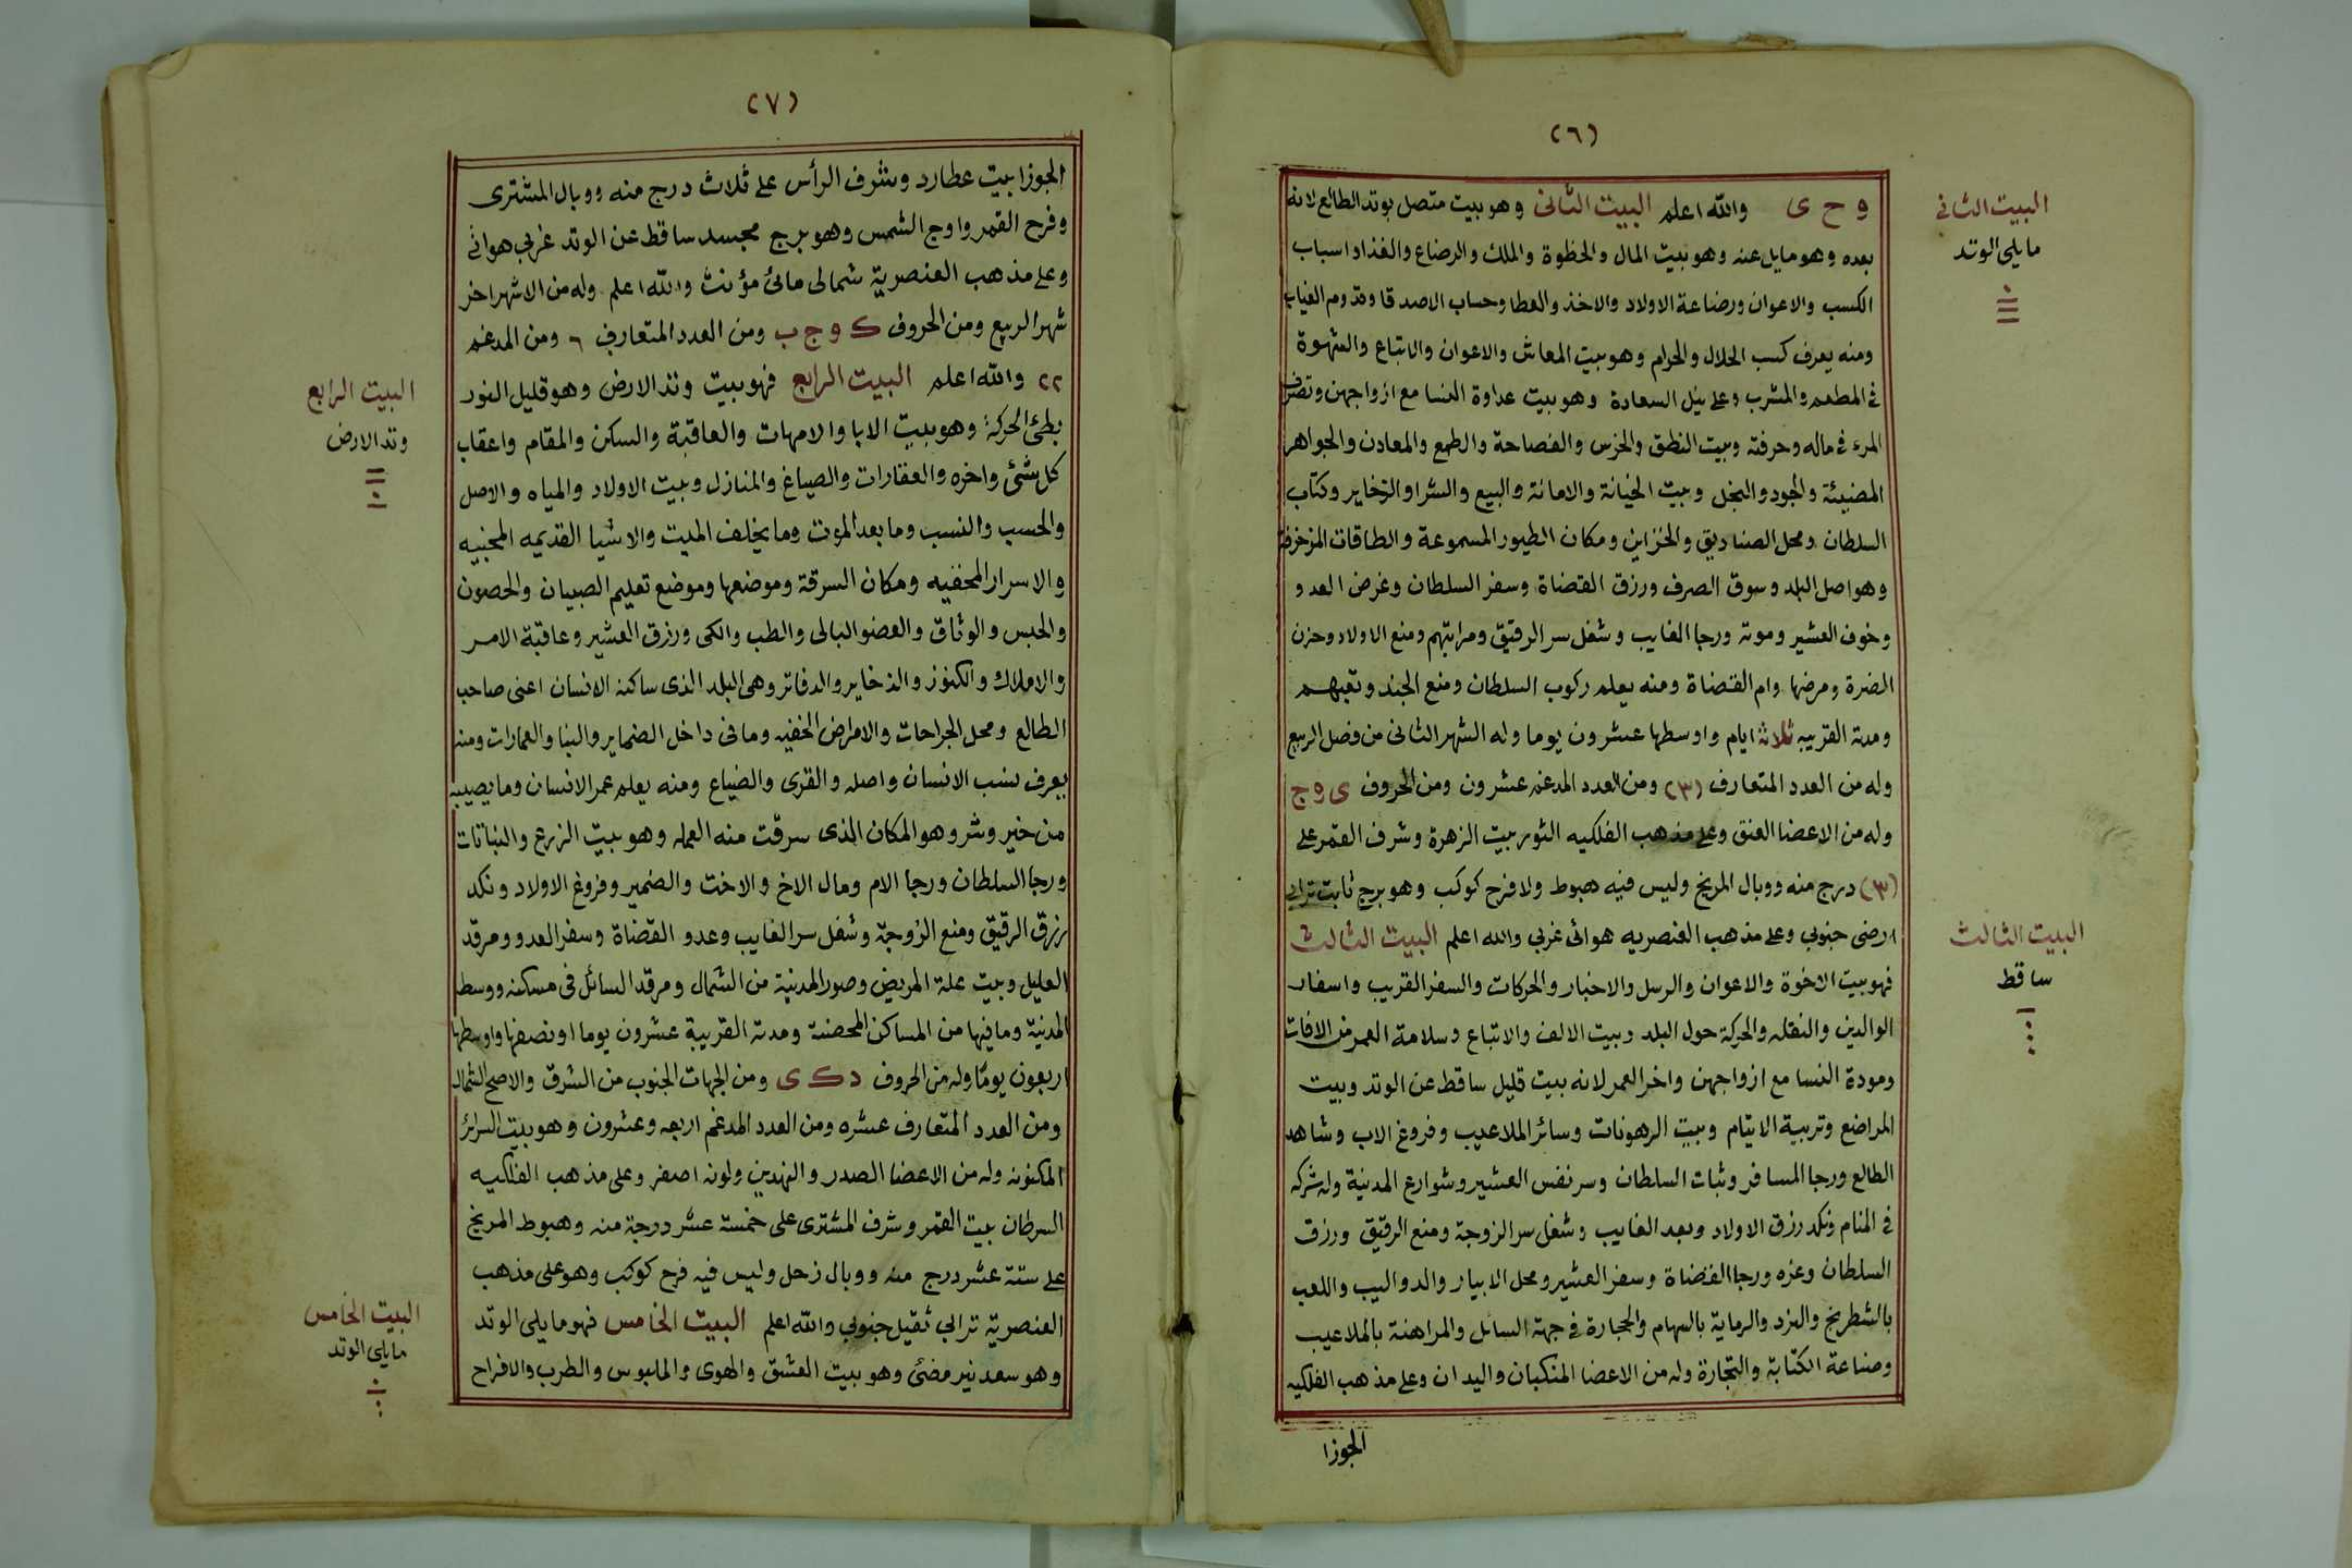 (٦)
و ح ى والله اعلم البيت الثانى وهو بيت متصل بوتد الطالع لانه
بعده وهو مايل عنه وهو بيت المال والحظوة والملك والرضاع والغذا واسباب
الكسب والاعوان ورضاعة الاولاد والاخذ والعطا وحساب الاصدقا وقدوم الغياب
ومنه يعرف كسب الحلال والحرام وهو بيت المعاش والاعوان والاتباع والشهوة
فى المطعم والمشرب وعلى نيل السعادة وهو بيت عداوة النسا مع ازواجهن وتصرف
المرء فى ماله وحرفته وبيت النطق والخرس والفصاحة والطمع والمعادن والجواهر
المضيئة والجود والبخل وبيت الخيانة والامانة والبيع والشرا والذخاير وكتاب
السلطان ومحل الصناديق والخزاين ومكان الطيور المسموعة والطاقات المزخرفة
وهو اصل البلد وسوق الصرف ورزق القضاة وسفر السلطان وغرض العدو
وخوف العشير وموته ورجا الغايب وشغل سر الرقيق ومرابتهم ومنع الاولاد وحزن
الضرة ومرضها وام القضاة ومنه يعلم ركوب السلطان ومنع الجند وتعبهم
ومدته القريبه ثلاثة ايام واوسطها عشرون يوما وله الشهر الثانى من فصل الربيع
وله من العدد المتعارف (٣) ومن العدد المدغم عشرون ومن الحروف ى و ج
وله من الاعضا العنق وعلى مذهب الفلكيه الثور بيت الزهرة وشرف القمر على
(٣) درج منه ووبال المريخ وليس فيه هبوط ولا فرح كوكب وهو برج ثابت ترابى
ارضى جنوبى وعلى مذهب العنصريه هوائى غربى والله اعلم البيت الثالث
فهو بيت الاخوة والاعوان والرسل والاخبار والحركات والسفر القريب واسفار
الوالدين والنقله والحركة حول البلد وبيت الالف والاتباع وسلامة العمر من الافات
ومودة النسا مع ازواجهن واخر العمر لانه بيت قليل ساقط عن الوتد وبيت
المراضع وتربية الايتام وبيت الرهونات وسائر الملاعيب وفروغ الاب وشاهد
الطالع ورجا المسافر وثبات السلطان وسر نفس العشير وشوارع المدنية وله شركه
فى المنام ونكد رزق الاولاد وبعد الغايب وشغل سر الزوجة ومنع الرقيق ورزق
السلطان وعزه ورجا القضاة وسفر العشير ومحل الابيار والدواليب واللعب
بالشطرنج والنرد والرماية بالسهام والحجارة فى جهة السائل والمراهنة بالملاعيب
وصناعة الكتابة والتجارة وله من الاعضا المنكبان واليدان وعلى مذهب الفلكيه
الجوزا
البيت الثانى
مايلى الوتد
البيت الثالث
ساقط
(٧)
الجوزا بيت عطارد وشرف الرأس على ثلاث درج منه ووبال المشترى
وفرح القمر واوج الشمس وهو برج مجسد ساقط عن الوتد غربى هوائى
وعلى مذهب العنصرية شمالى مائى مؤنث والله اعلم وله من الاشهر اخر
شهر الربيع ومن الحروف ك و ج ب ومن العدد المتعارف ٦ ومن المدغم
٢٢ والله اعلم البيت الرابع فهو بيت وتد الارض وهو قليل النور
بطئ الحركة وهو بيت الابا والامهات والعاقبة والسكن والمقام واعقاب
كل شئ واخره والعقارات والصياغ والمنازل وبيت الاولاد والمياه والاصل
والحسب والنسب وما بعد الموت وما يخلف الميت والاشيا القديمه المخبيه
والاسرار المخفيه ومكان السرقة وموضعها وموضع تعليم الصبيان والحصون
والحبس والوثاق والعضو البالى والطب والكى ورزق العشير وعاقبة الامر
والاملاك والكنوز والذخاير والدفاتر وهى البلد الذى ساكنه الانسان اعنى صاحب
الطالع ومحل الجراحات والامراض الخفيه وما فى داخل الضماير والبنا والعمارات ومنه
يعرف نسب الانسان واصله والقرى والضياع ومنه يعلم عمر الانسان وما يصيبه
من خير وشر وهو المكان الذى سرقت منه العمله وهو بيت الزرع والنباتات
ورجا السلطان ورجا الام ومال الاخ والاخت والضمير وفروغ الاولاد ونكد
رزق الرقيق ومنع الزوجة وشغل سر الغايب وعدو القضاة وسفر العدو ومرقد
العليل وبيت علة المريض وصور المدنية من الشمال ومرقد السائل فى مسكنه ووسط
المدنية وما فيها من المساكن المحصنة ومدته القريبة عشرون يوما او نصفها واوسطها
اربعون يوما وله من الحروف د ك ى ومن الجهات الجنوب من الشرق والاصح الشمال
ومن العدد المتعارف عشره ومن العدد المدغم اربعه وعشرون وهو بيت السرائر
المكنونه وله من الاعضا الصدر والنهدين ولونه اصفر وعلى مذهب الفلكيه
السرطان بيت القمر وشرف المشترى على خمسة عشر درجة منه وهبوط المريخ
على ستة عشر درج منه ووبال زحل وليس فيه فرح كوكب وهو على مذهب
العنصرية ترابى ثقيل جنوبى والله اعلم البيت الخامس فهو مايلى الوتد
وهو سعد نير مضئ وهو بيت العشق والهوى والملبوس والطرب والافراح
البيت الرابع
وتد الارض
البيت الخامس
مايلى الوتد